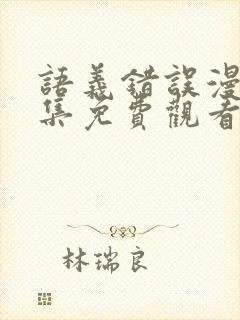 語義錯誤漫
集免費觀看
林瑞良